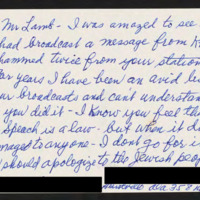 Mr Lamb - I was amazed to see
had broadcast a message from
hammed twice from your station
years I have been an avid
broadcasts and can't understand
you did it - I know you feel that
speech is a law - but when it
to anyone - I don't go for
should apologize to the Jewish
Huntsville Ala 358